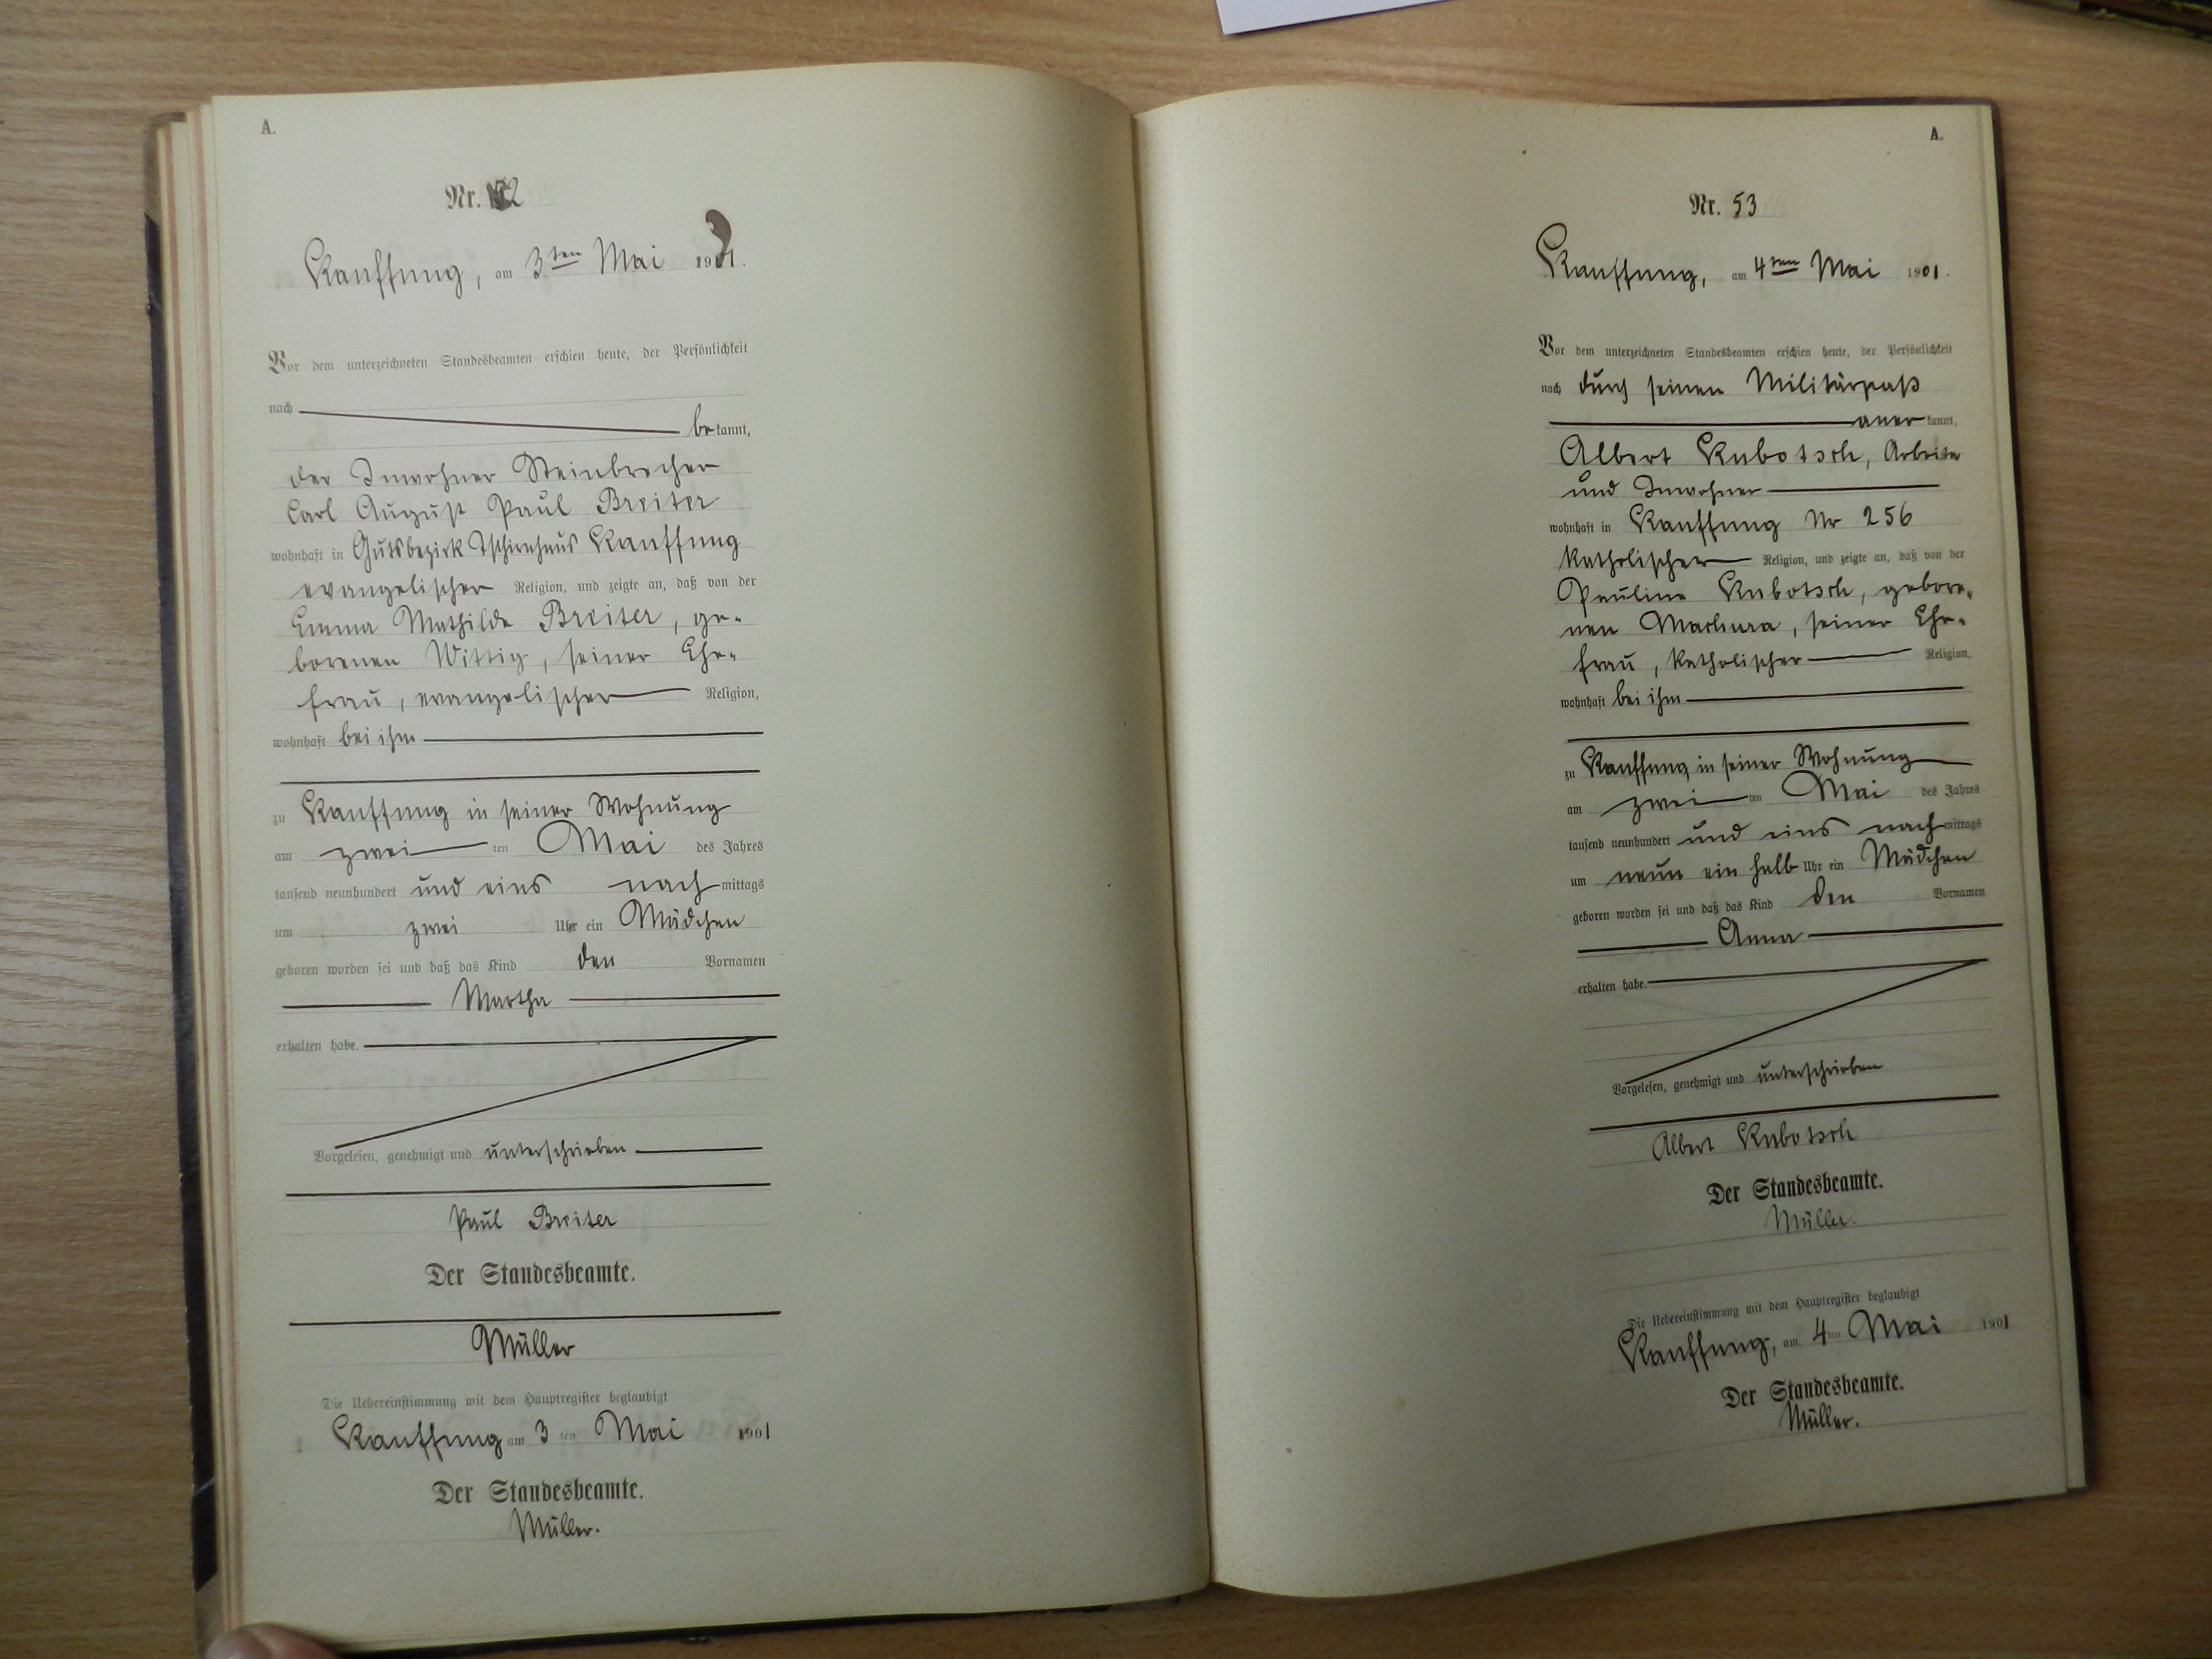 A.
Nr. 52
Kauffung, am 3ten Mai 1901.
Vor dem unterzeichneten Standesbeamten erschien heute, der Persönlichkeit
nach
be kannt,
der Inwohner Steinbrecher
Carl August Paul Breiter
wohnhaft in Gutsbezirk Tschirnhaus Kauffung
evangelischer Religion, und zeigte an, daß von der
Emma Mathilde Breiter, ge-
borenen Wittig, seiner Ehe-
frau, evangelischer Religion,
wohnhaft bei ihm
zu Kauffung in seiner Wohnung
am zwei ten Mai des Jahres
tausend neunhundert und eins nach mittags
um zwei Uhr ein Mädchen
geboren worden sei und daß das Kind den Vornamen
Martha
erhalten habe.
Vorgelesen, genehmigt und unterschrieben
Paul Breiter
Der Standesbeamte.
Müller
Die Uebereinstimmung mit dem Hauptregister beglaubigt
Kauffung am 3 ten Mai 1901
Der Standesbeamte.
Müller.
A.
Nr. 53
Kauffung, am 4ten Mai 1901.
Vor dem unterzeichneten Standesbeamten erschien heute, der Persönlichkeit
nach durch seinen Militärpaß
aner kannt,
Albert Kubotsch, Arbeiter
und Inwohner
wohnhaft in Kauffung Nr 256
katholischer Religion, und zeigte an, daß von der
Pauline Kubotsch, gebore-
nen Machura, seiner Ehe-
frau, katholischer Religion,
wohnhaft bei ihm
zu Kauffung in seiner Wohnung
am zwei ten Mai des Jahres
tausend neunhundert und eins nach mittags
um neun ein halb Uhr ein Mädchen
geboren worden sei und daß das Kind den Vornamen
Anna
erhalten habe.
Vorgelesen, genehmigt und unterschrieben
Albert Kubotsch
Der Standesbeamte.
Müller.
Die Uebereinstimmung mit dem Hauptregister beglaubigt
Kauffung, am 4 ten Mai 1901
Der Standesbeamte.
Müller.